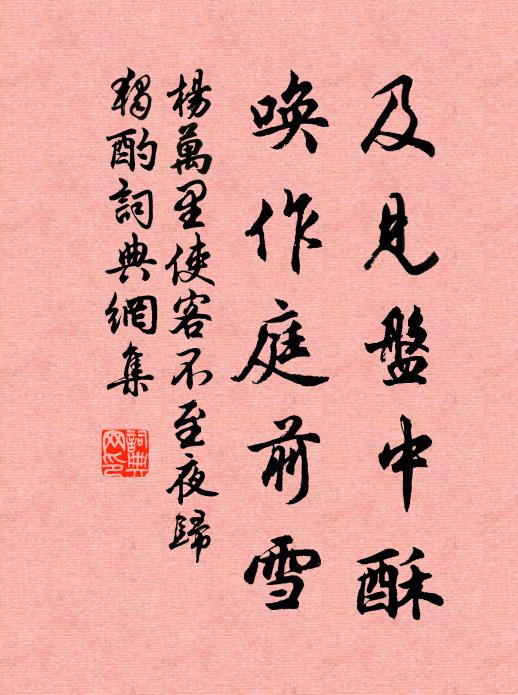 及見盤中酥
喚作庭前雪
楊萬里使客不至夜歸
獨酌詞典網集
詞典
网印